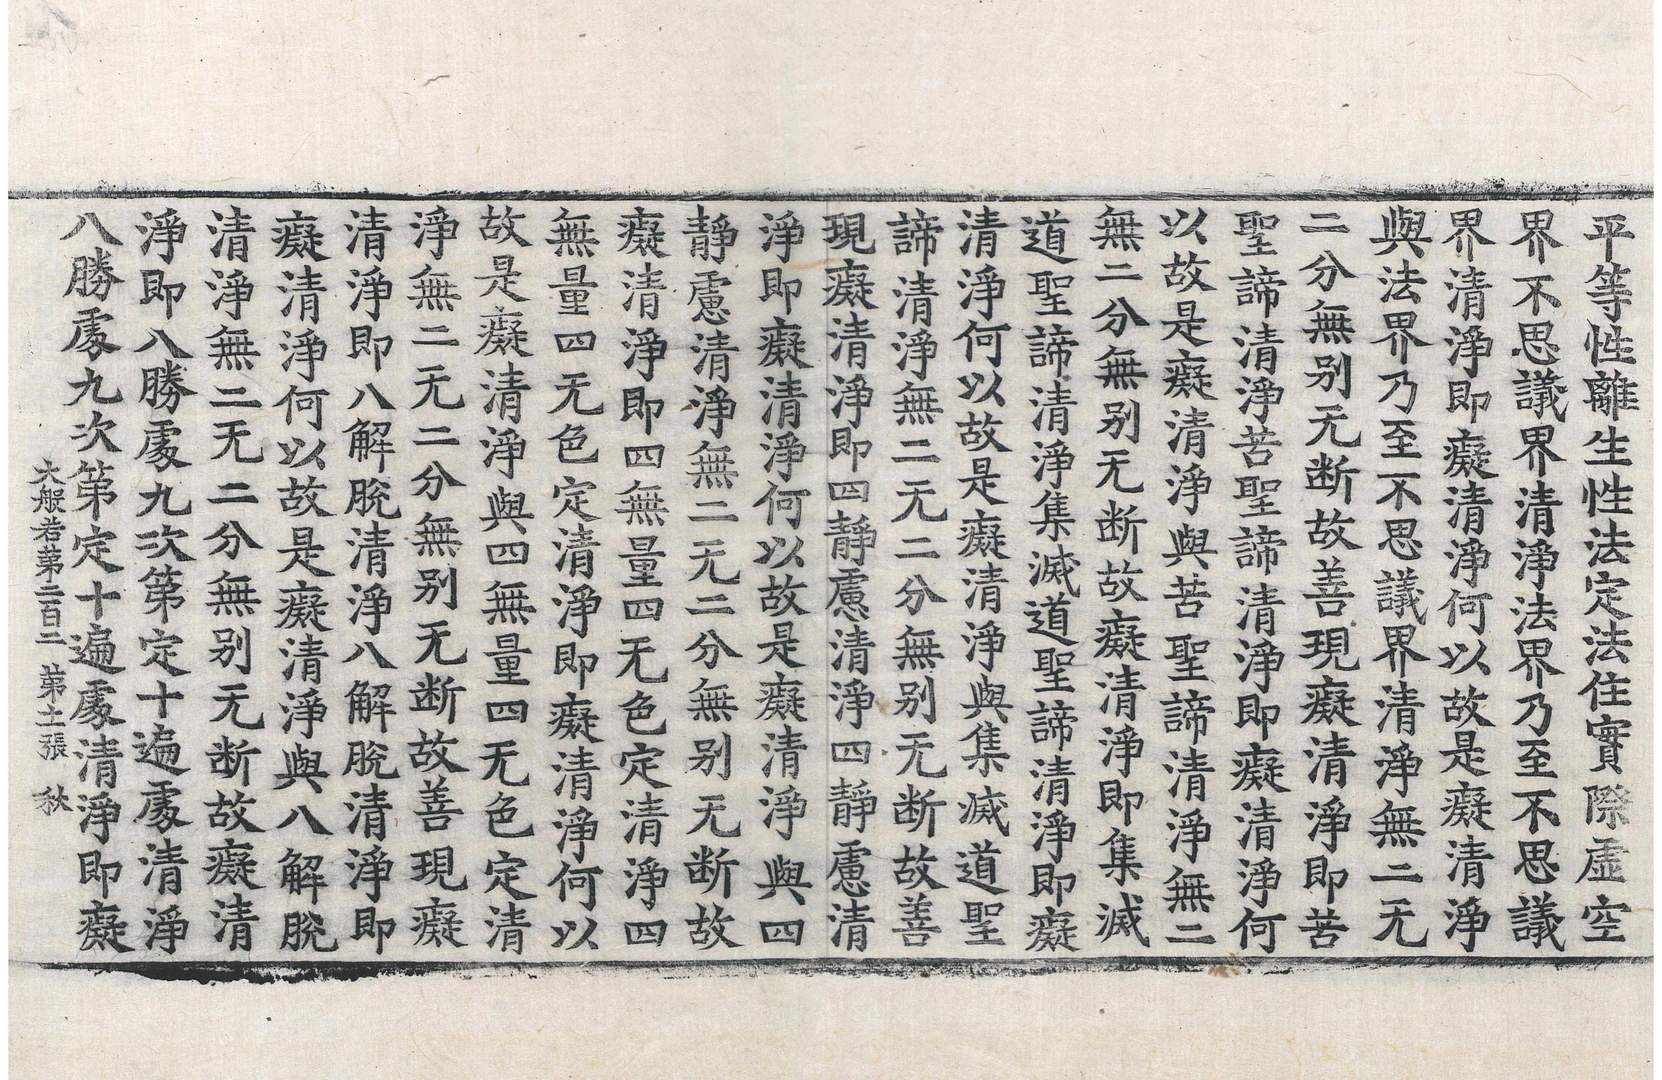 平等性離生性法定法住實際虛空
界不思議界清淨法界乃至不思議
界清淨即癡清淨何以故是癡清淨
與法界乃至不思議界清淨無二无
二分無別无断故善現癡清淨即苦
聖諦清淨苦聖諦清淨即癡清淨何
以故是癡清淨與苦聖諦清淨無二
無二分無別无断故癡清淨即集滅
道聖諦清淨集滅道聖諦清淨即癡
清淨何以故是癡清淨與集滅道聖
諦清淨無二无二分無別无断故善
現癡清淨即四靜慮清淨四靜慮清
淨即癡清淨何以故是癡清淨與四
靜慮清淨無二无二分無別无断故
癡清淨即四無量四无色定清淨四
無量四无色定清淨即癡清淨何以
故是癡清淨與四無量四无色定清
淨無二无二分無別无断故善現癡
清淨即八解脫清淨八解脫清淨即
癡清淨何以故是癡清淨與八解脫
清淨無二无二分無別无断故癡清
淨即八勝處九次第定十遍處清淨
八勝處九次第定十遍處清淨即癡
大般若第二百二 第十二張 秋